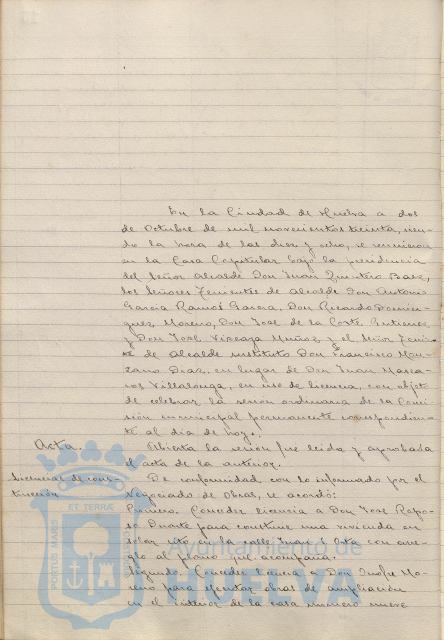 En la Ciudad de Huelva a dos
de Octubre de mil novecientos treinta, sien-
do la hora de las diez y ocho, se reunieron
en la Casa Capitular bajo la presidencia
del Señor Alcalde Don Juan Quintero Baez,
los Señores Tenientes de Alcalde Don Antonio
Garcia Ramos Garcia, Don Ricardo Domin-
guez Moreno, Don Jose de la Corte Gutierrez
y Don José Vizcaya Muñoz y el Señor Tenien-
te de Alcalde sustituto Don Francisco Man-
zano Diaz, en lugar de Don Juan
Villalonga, en uso de licencia, con objeto
de celebrar la sesión ordinaria de la Comi-
sión municipal permanente correspondien-
te al dia de hoy.
Acta. Abierta la sesión fue leida y aprobada
el acta de la anterior.
Licencias de cons- De conformidad con lo informado por el
trucción Negociado de Obras, se acordó:
Primero. Conceder licencia a Don José Rapo-
so Duarte para construir una vivienda en
solar sito en la calle con arre-
glo al plano que acompaña.
Segundo. Conceder licencia a Don Onofre Mo-
reno para ejecutar obras de ampliación
en el interior de la casa numero nueve
PORTUS MARIS
ET TERRÆ
Ayuntamiento de
HUELVA